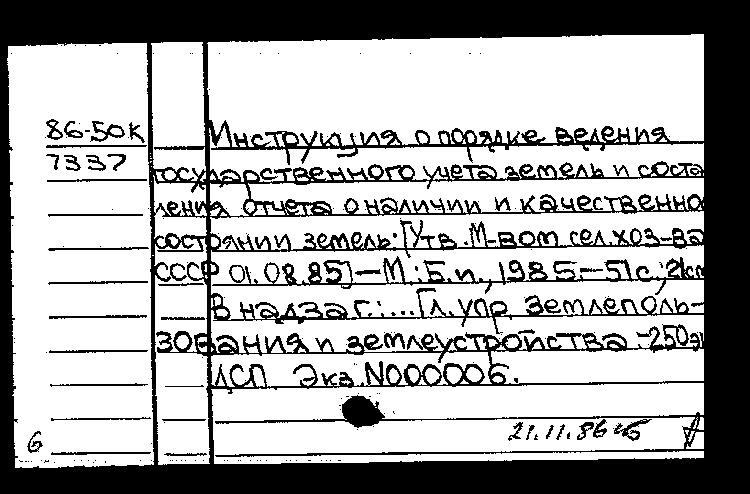 86-50К Инструкция о порядке ведения
7337 государственного учета земель и соста
ления отчета о наличии и качественно
состоянии земель: [Утв. М-вом сел.хоз-ва
СССР 01.08.85]-М.:Б.и., 1985.-51с.;21см
В надзаг.:...Гл.упр. землеполь-
зования и землеустройства.-250эк
ДСП. Экз.N000006.
21.11.86
6